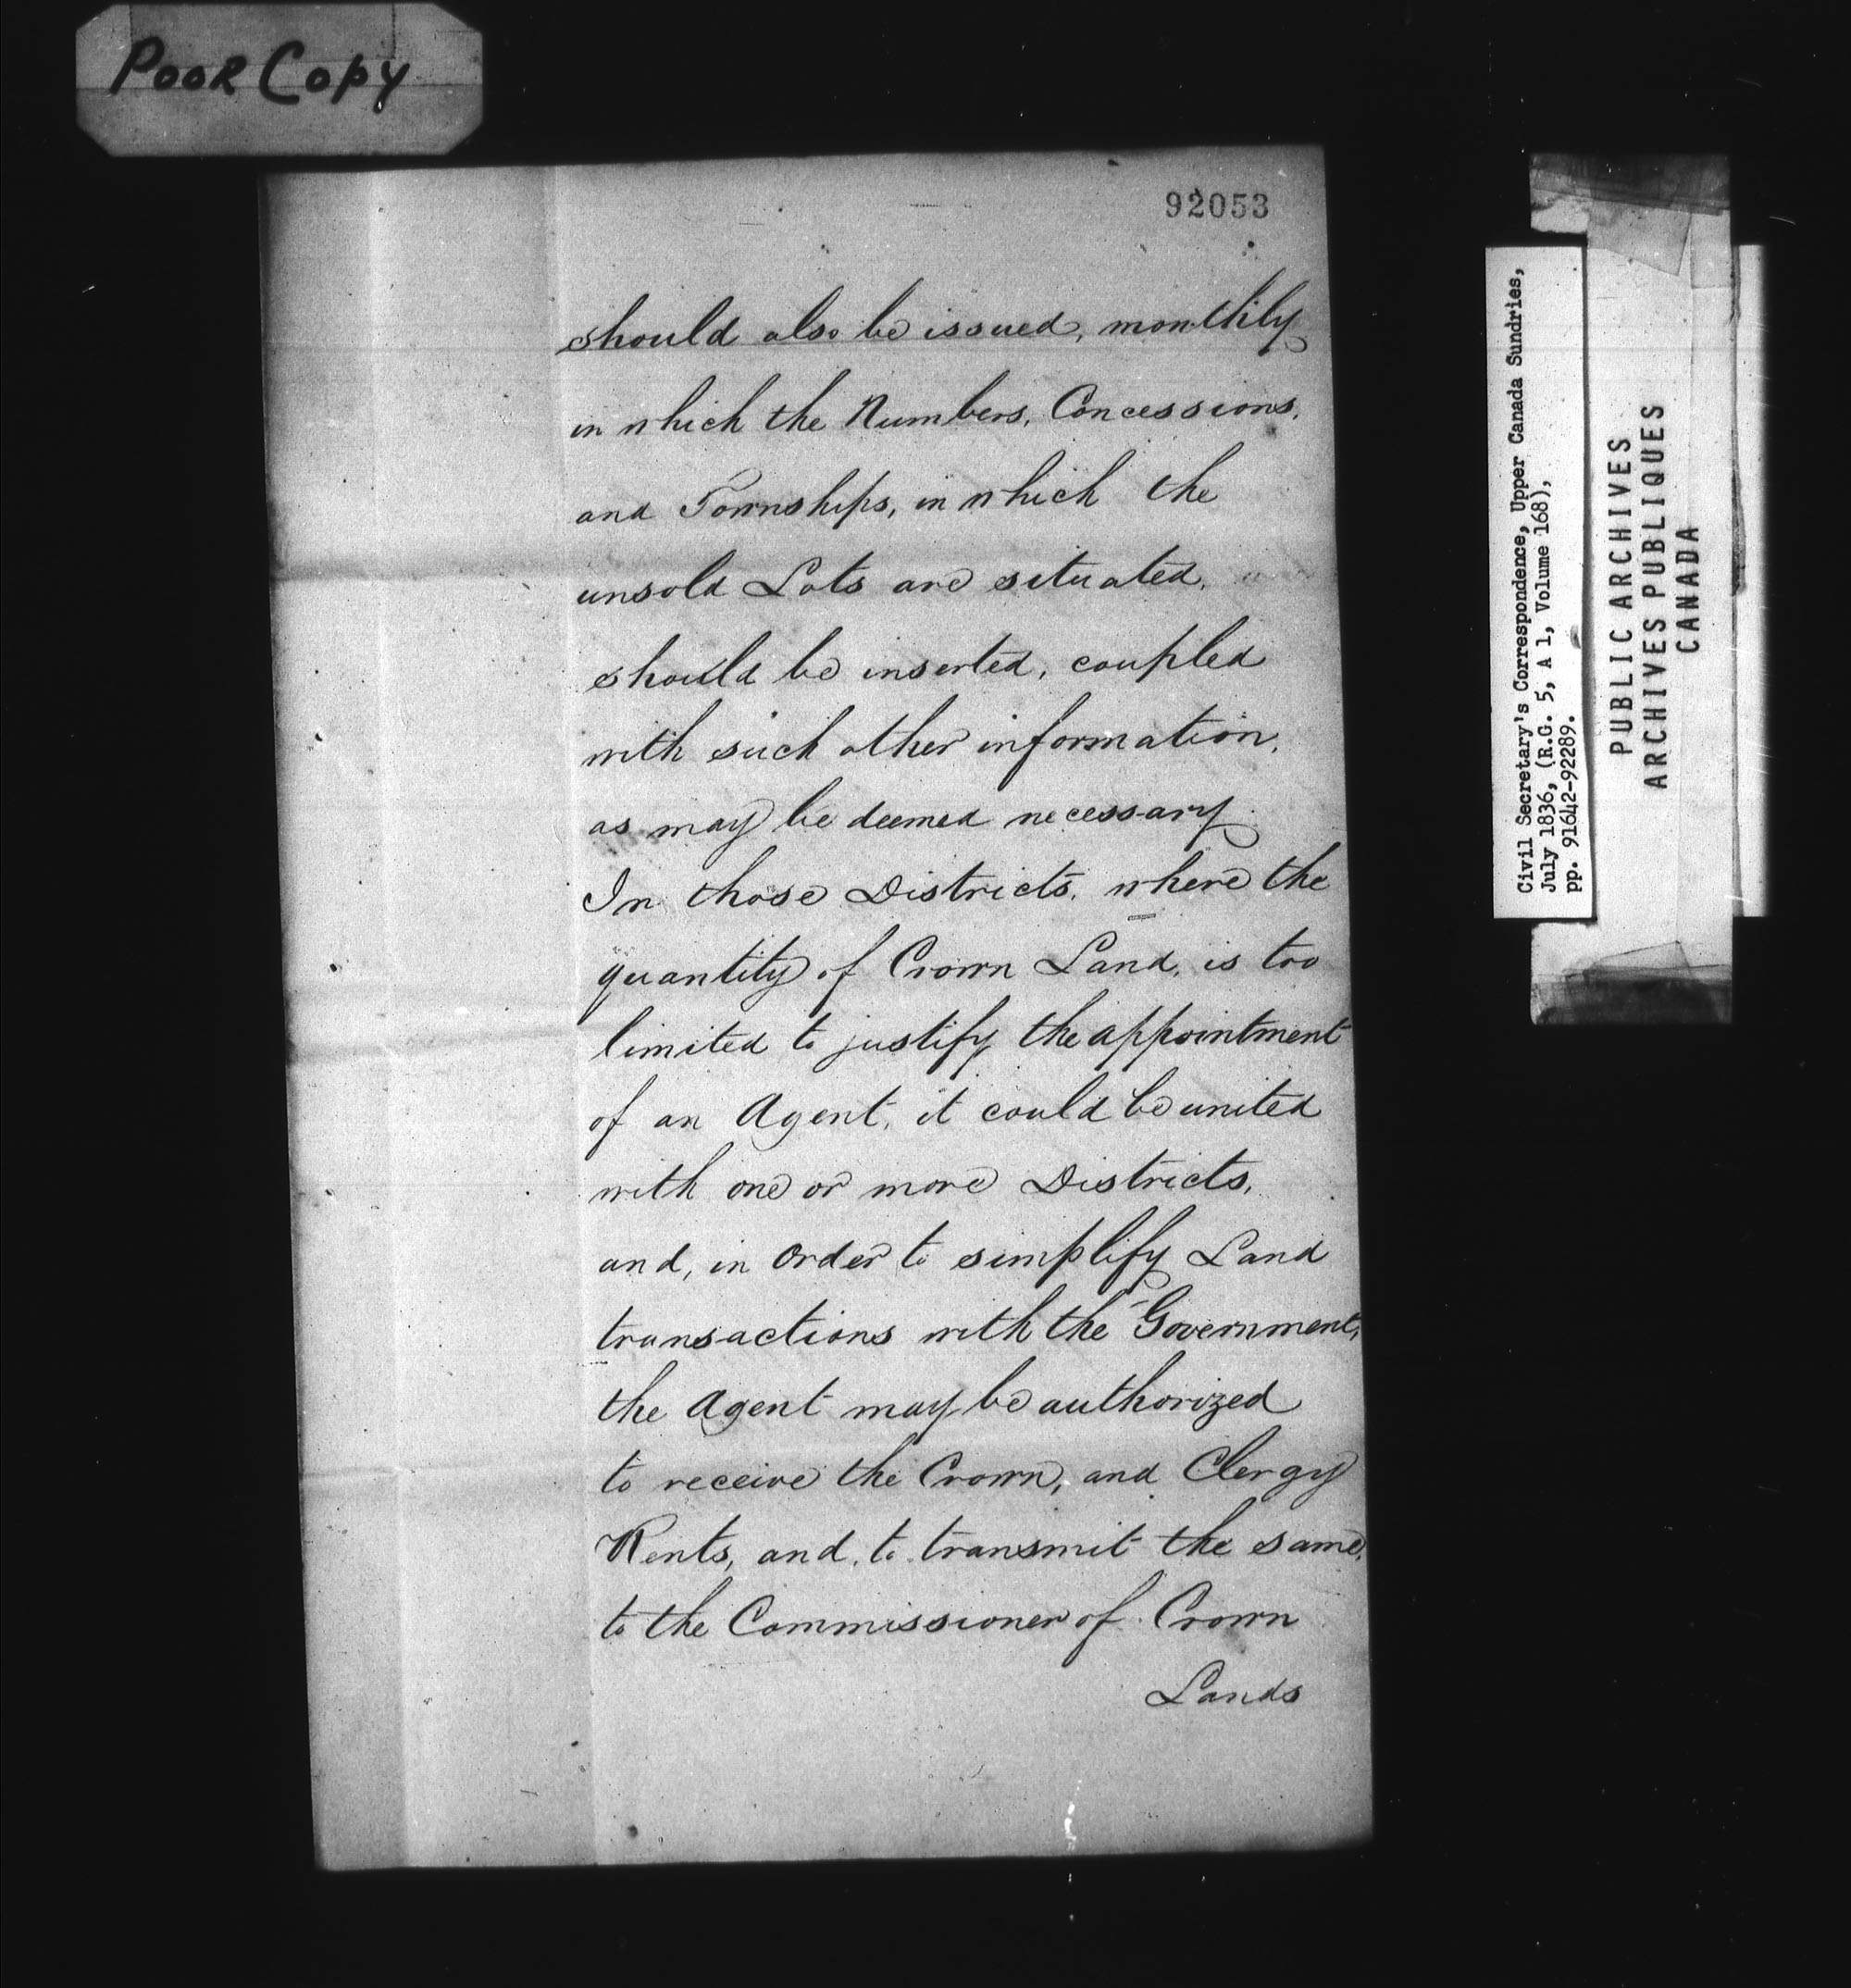 POOR COPY
92053
should also be issued, monthly
in which the Numbers, Concessions,
and Townships, in which the
unsold Lots are situated,
should be inserted, coupled
with such other information,
as may be deemed necessary.
In those Districts, where the
quantity of Crown Land, is too
limited to justify the appointment
of an Agent, it could be united
with one or more Districts,
and, in order to simplify Land
transactions with the Government,
the Agent may be authorized
to receive the Crown, and Clergy
Rents, and, to transmit the same,
to the Commissioner of Crown
Lands
Civil Secretary's Correspondence, Upper Canada Sundries,
July 1836, (R.G. 5, A 1, Volume 168),
pp. 91642-92289.
PUBLIC ARCHIVES
ARCHIVES PUBLIQUES
CANADA